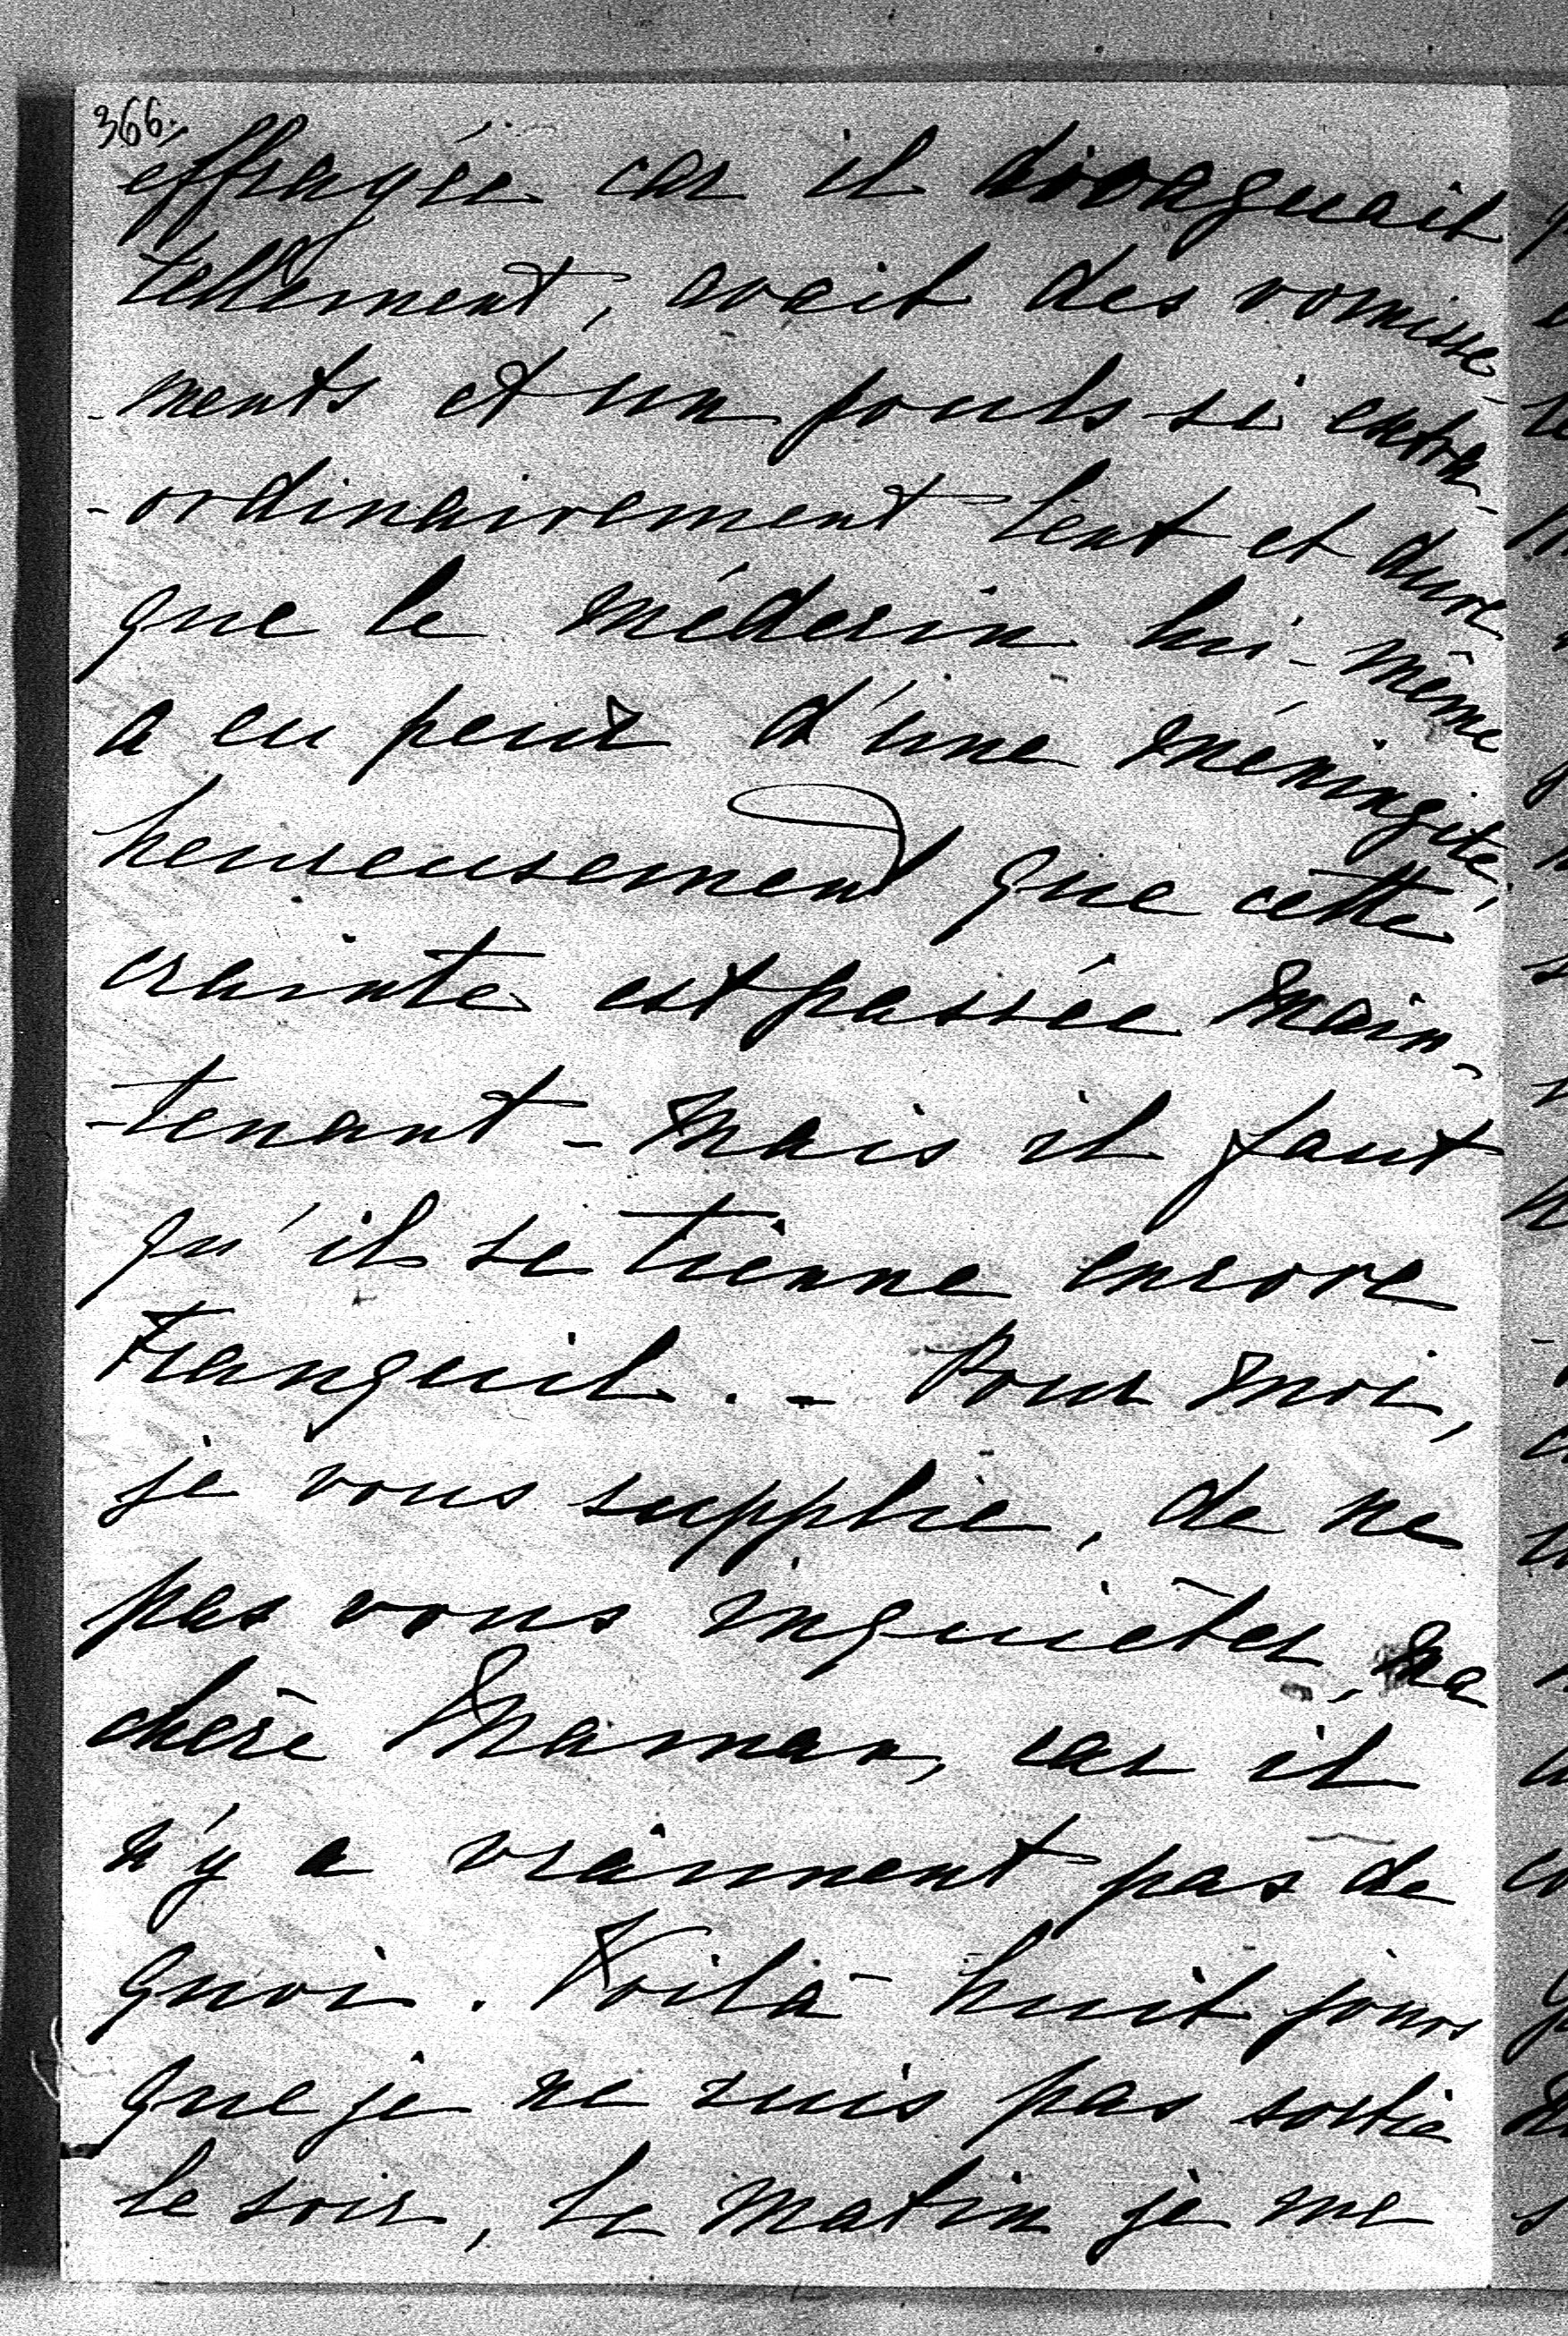 366.
effrayée car il divaguait
tellement, avait des vomisse
-ments et un pouls si extra-
-ordinairement lent et dure
que le médecin lui-même
a eu peur d'une méningite,
heureusement que cette
crainte est passée main-
-tenant - Mais il faut
qu'il se tienne encore
tranquil. - Pour moi,
je vous supplie, de ne
pas vous inquièter, ma
chère Maman, car il
n'y a vraiment pas de
quoi. Voilà huit jours
que je ne suis pas sortie
le soir, le matin je me